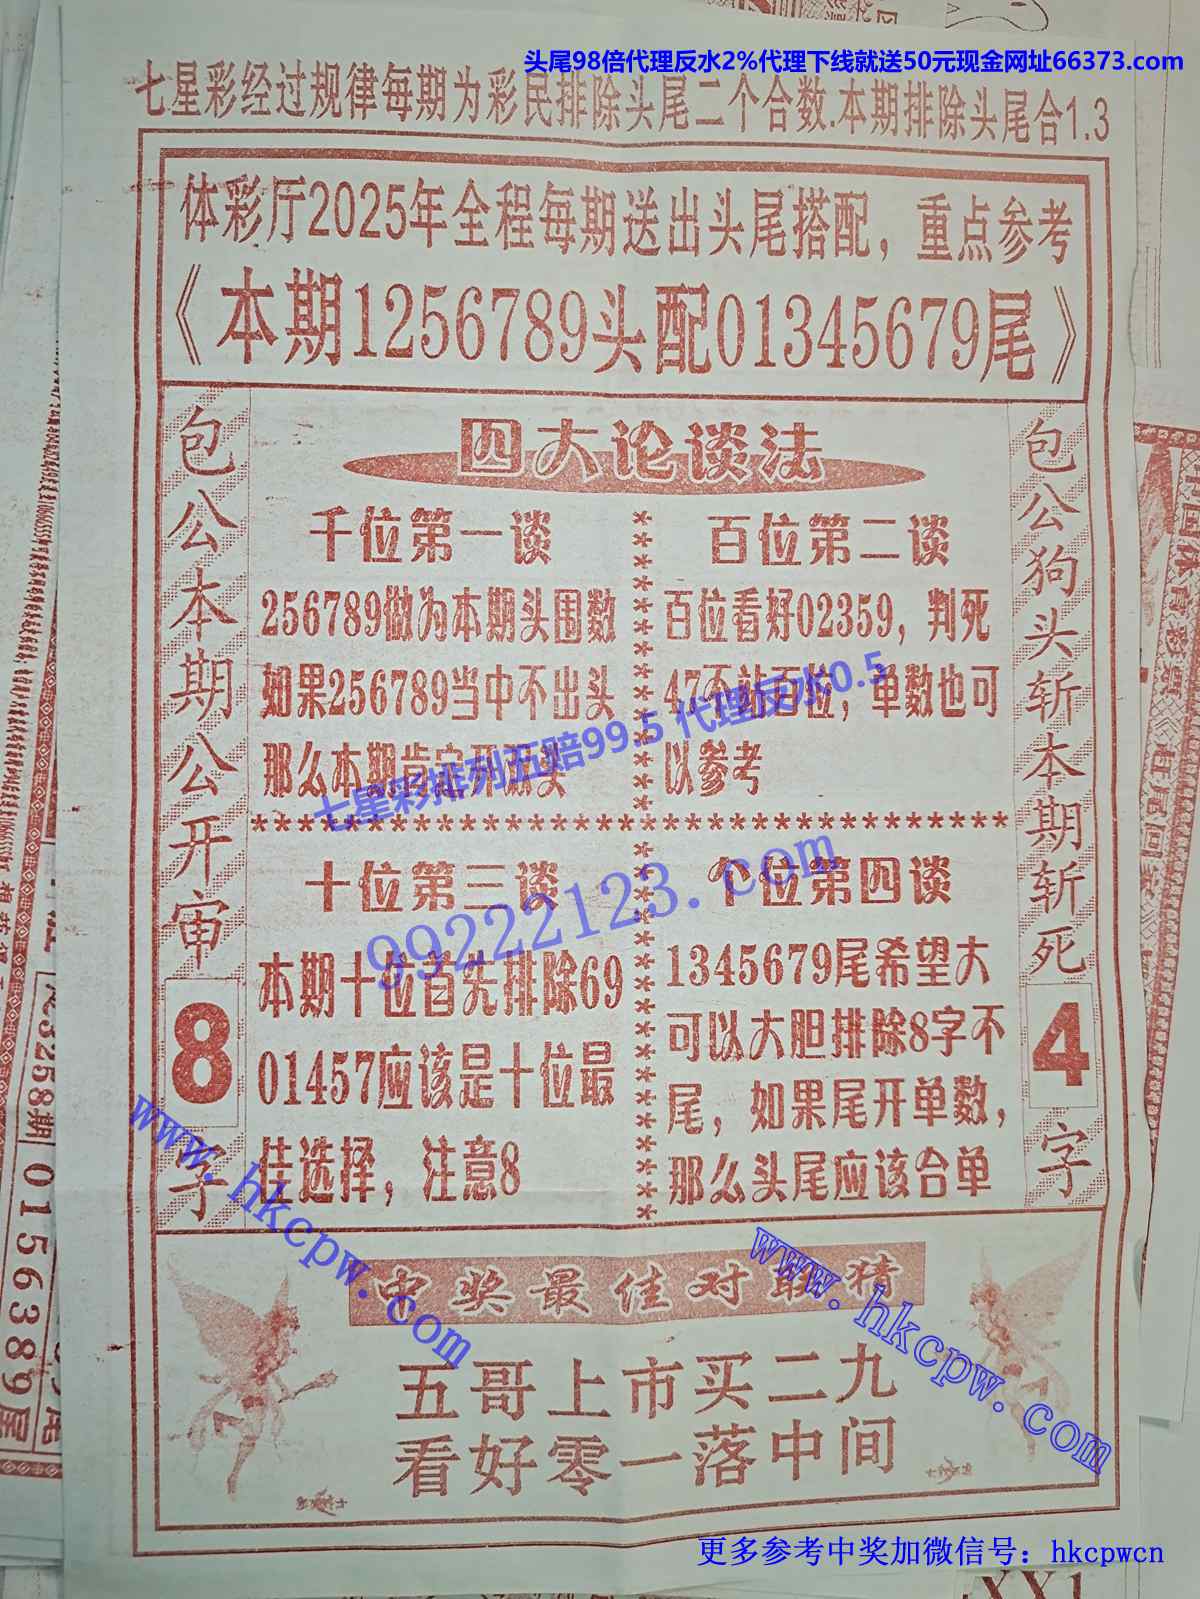 头尾98倍代理反水2%代理下线就送50元现金网址66373.com
七星彩经过规律每期为彩民排除头尾二个合数.本期排除头尾合1.3
体彩厅2025年全程每期送出头尾搭配，重点参考
《本期1256789头配01345679尾》
包公本期公开审8字
四大论谈法
千位第一谈
256789做为本期头围数
如果256789当中不出头
那么本期肯定开
头
百位第二谈
百位看好02359，判死
47不站百位，单数也可
以参考
七星彩排列五赔99.5 代理反水0.5
十位第三谈
本期十位首先排除69
01457应该是十位最
佳选择，注意8
个位第四谈
1345679尾希望大
可以大胆排除8字不
尾，如果尾开单数，
那么头尾应该合单
包公狗头斩本期斩死4字
99222123.com
www.hkcpw.com
www.hkcpw.com
中奖最佳对联猜
五哥上市买二九
看好零一落中间
更多参考中奖加微信号：hkcpwcn
3258期
0156389尾
XX1